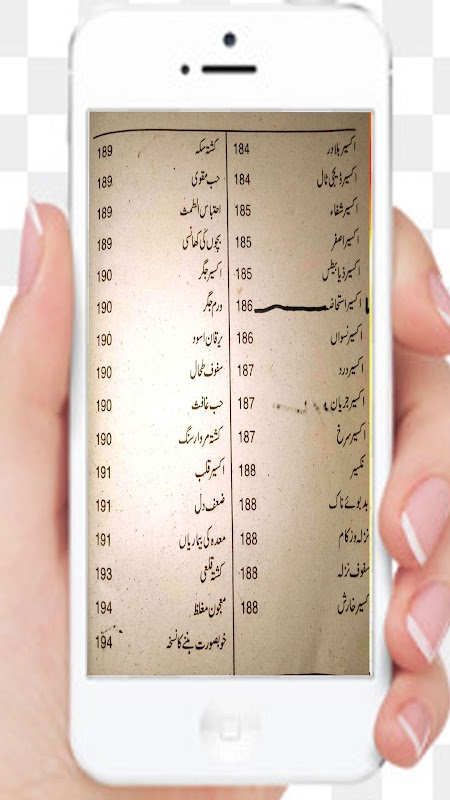 اکسیر بلادر 184
اکسیر ڈیجی ٹال 184
اکسیر شفاء 185
اکسیر اصفر 185
اکسیر ذیابیطس 185
اکسیر استحاضہ 186
اکسیر نسواں 186
اکسیر درد 187
اکسیر جریان 187
اکسیر سرخ 187
نکسیر 188
بدبوئے ناک 188
نزلہ و زکام 188
سفوف نزلہ 188
اکسیر خارش 188
کشتہ سکہ 189
حب مقوی 189
احتباس الطمث 189
بچوں کی کھانسی 189
اکسیر جگر 190
ورم جگر 190
یرقان اسود 190
سفوف طحال 190
حب غافث 190
کشتہ مروارسنگ 190
اکسیر قلب 191
ضعف دل 191
معدہ کی بیماریاں 191
کشتہ قلعی 193
معجون مغلظ 194
خوبصورت بننے کا نسخہ 194